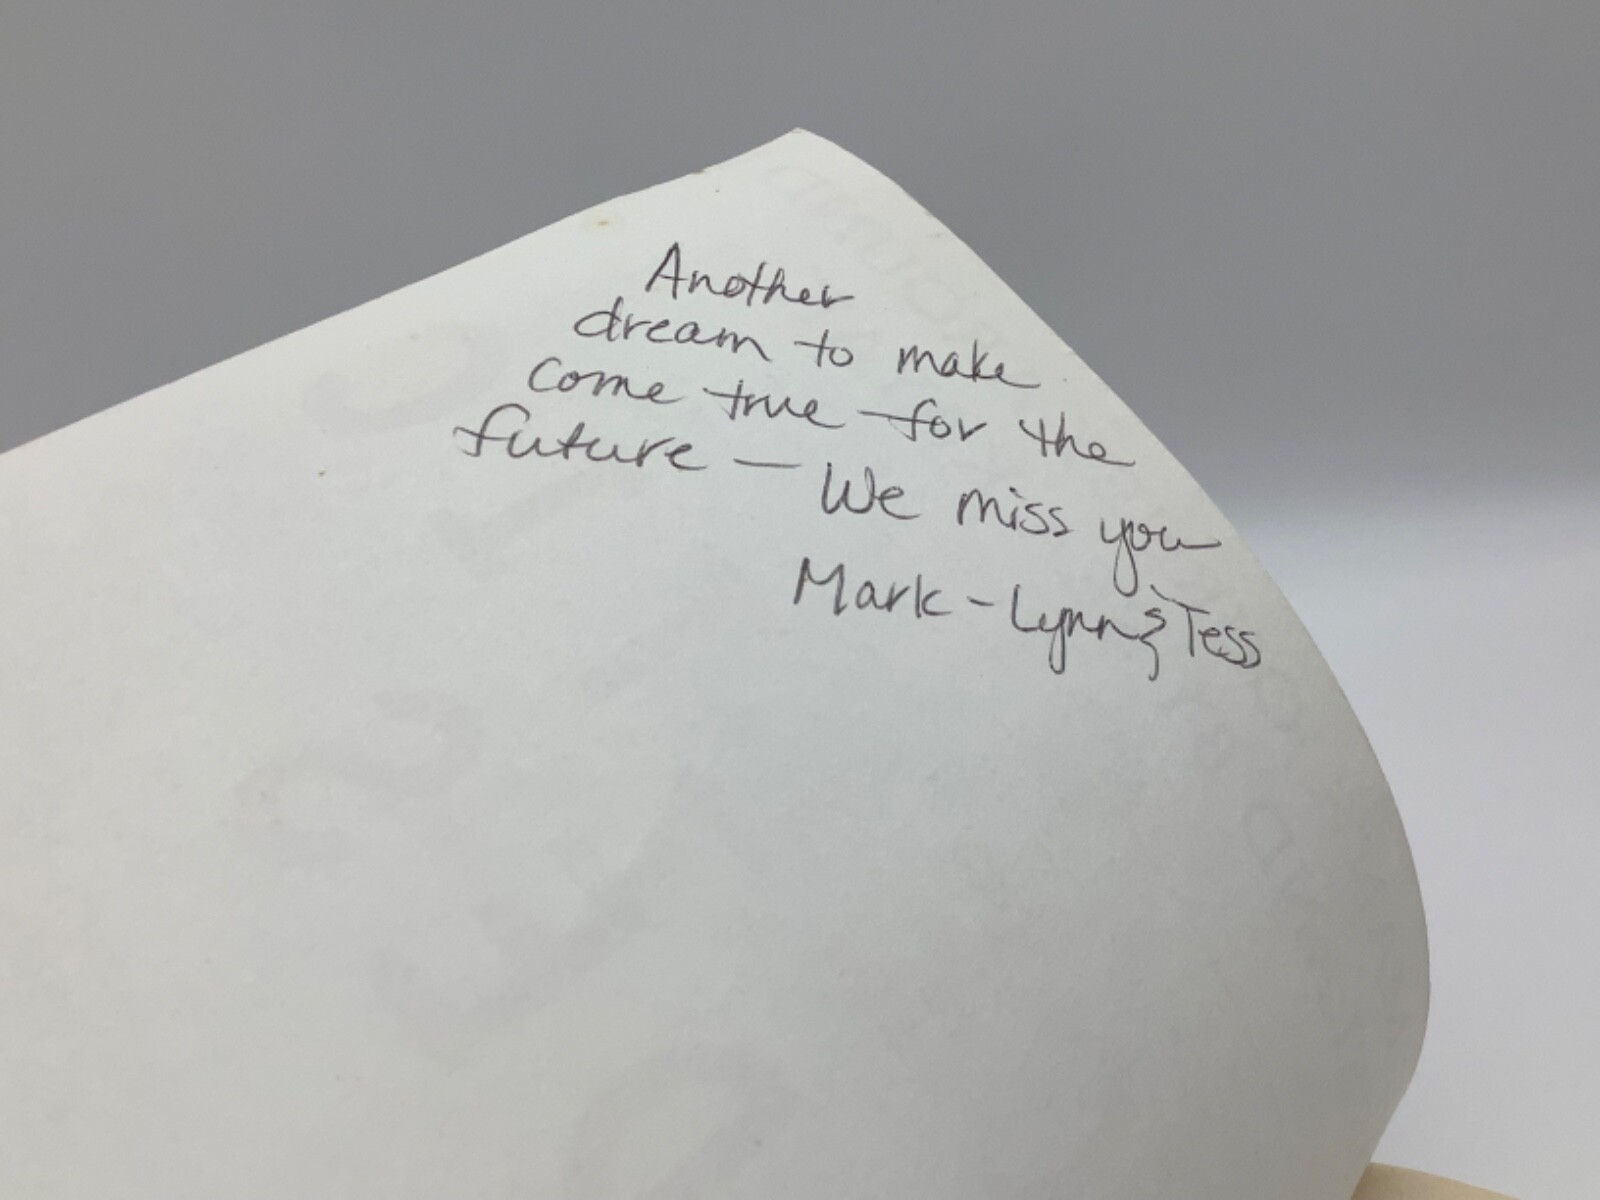 Another
dream to make
come true for the
future — We miss you
Mark - Lynn & Tess